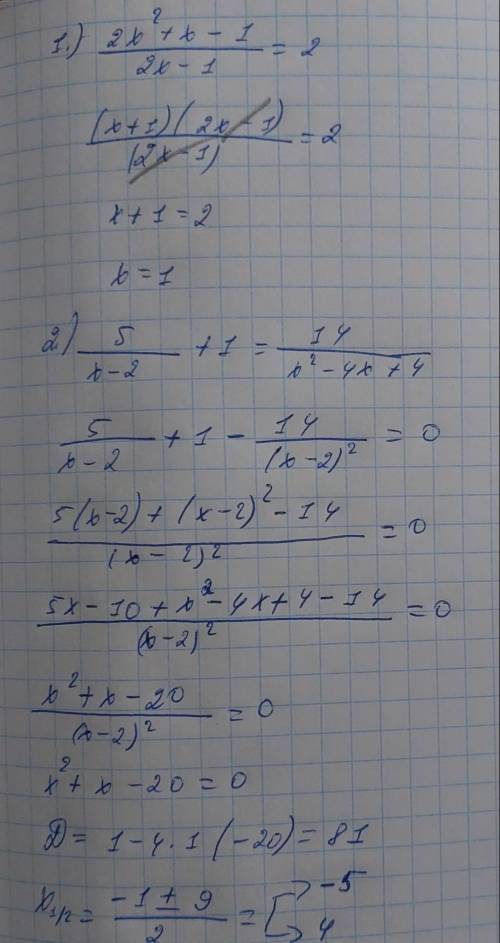 1.) (2x² + x - 1)/(2x - 1) = 2
((x+1)(2x-1))/((2x-1)) = 2
x + 1 = 2
x = 1
2) 5/(x-2) + 1 = 14/(x² - 4x + 4)
5/(x-2) + 1 - 14/(x-2)² = 0
(5(x-2) + (x-2)² - 14)/(x-2)² = 0
(5x - 10 + x² - 4x + 4 - 14)/(x-2)² = 0
(x² + x - 20)/(x-2)² = 0
x² + x - 20 = 0
D = 1 - 4 · 1 (-20) = 81
x₁/₂ = (-1 ± 9)/2 = [→ -5
→ 4